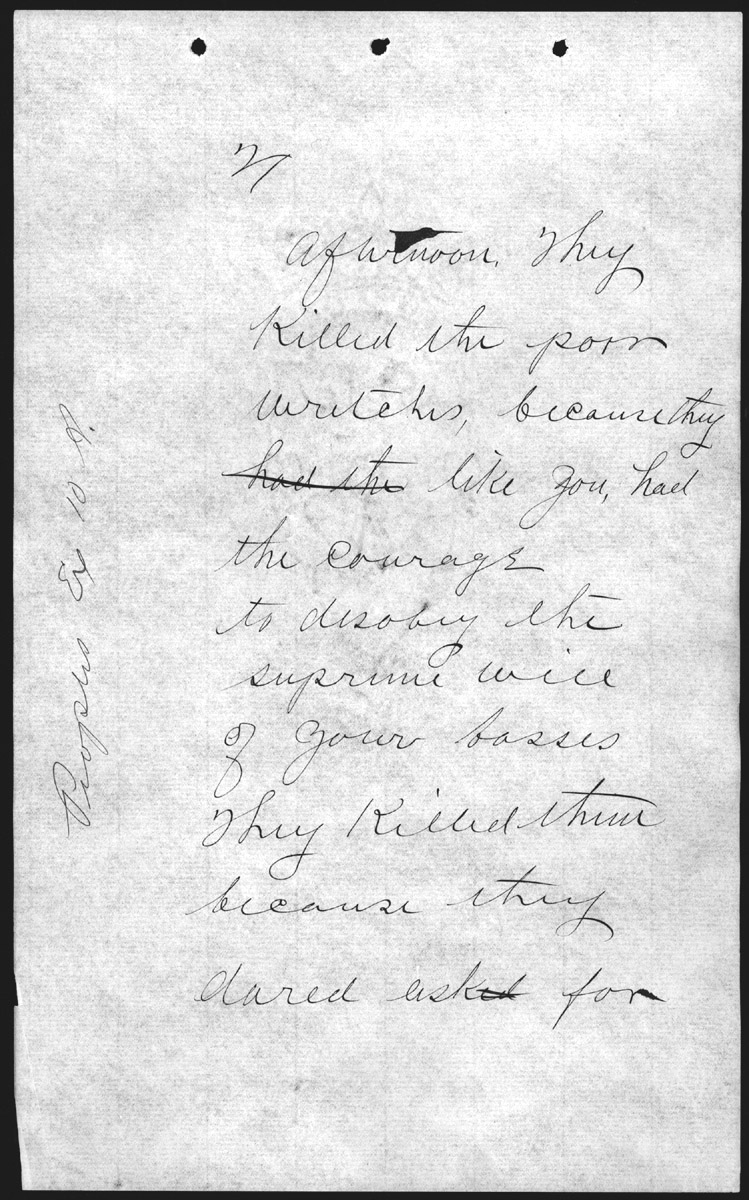 2/
Afternoon. They
Killed the poor
wretches, because they
had the like you, had
the courage
to disobey the
supreme will
of your bosses
They Killed them
because they
dared asked for
Peoples Ex 10